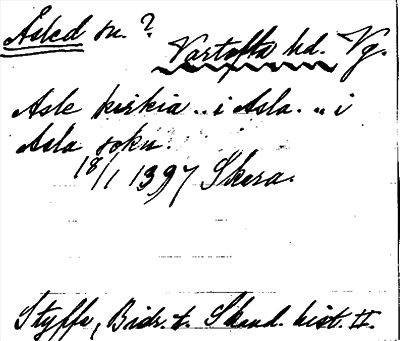 Åsled sn. ?
Vartofta hd. Vg.
Asle kirkia .. i Asla .. i
Asla sokn.
18/1 1397 Skara.
Styffe, Bidr. t. Skand. hist. II.